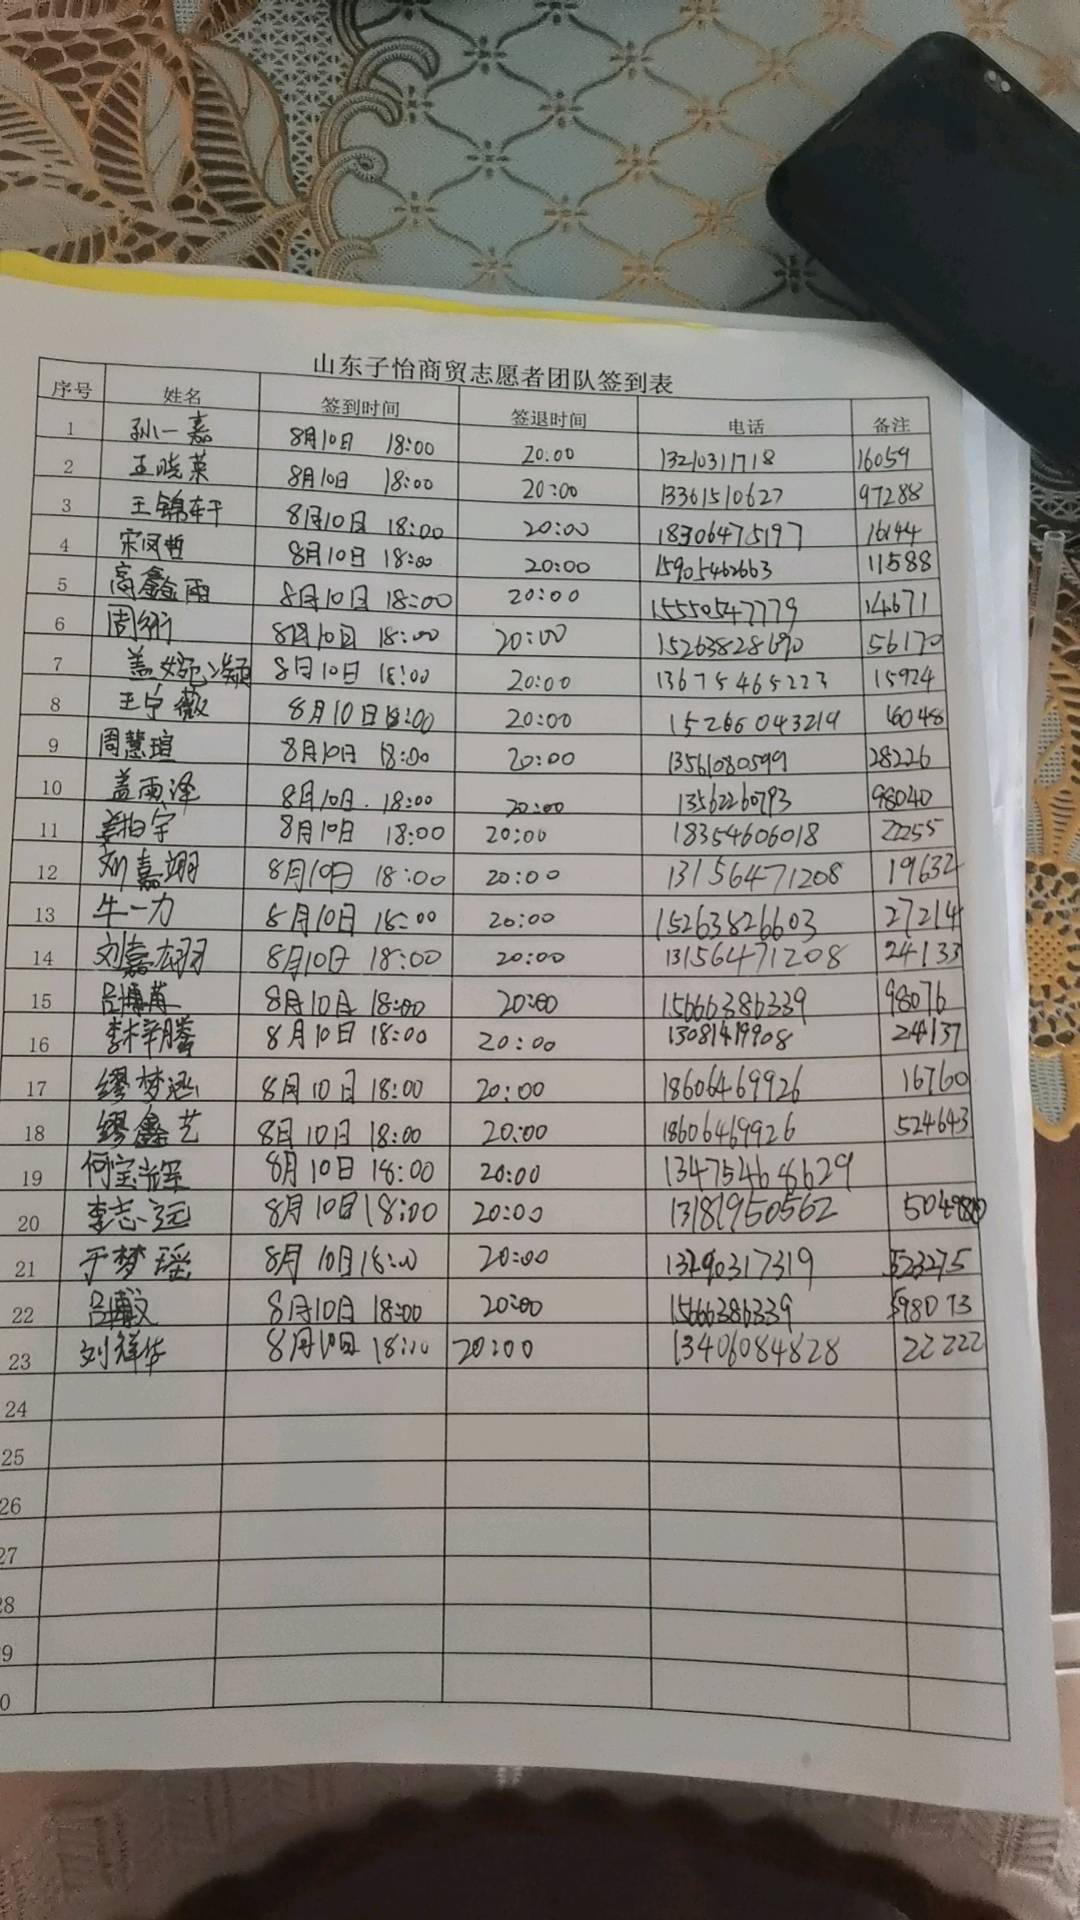 山东子怡商贸志愿者团队签到表
序号 姓名 签到时间 签退时间 电话 备注
1 孙一嘉 8月10日 18:00 20:00 13210311718 16059
2 王晓莱 8月10日 18:00 20:00 13361510627 97288
3 王锦轩 8月10日 18:00 20:00 18306475197 16144
4 宋闵哲 8月10日 18:00 20:00 15905462663 11588
5 高鑫雨 8月10日 18:00 20:00 15550547779 14671
6 周衍 8月10日 18:00 20:00 15263828690 56170
7 盖婉滢 8月10日 18:00 20:00 13675465223 15924
8 王宁薇 8月10日 18:00 20:00 15266043219 16048
9 周慧瑄 8月10日 18:00 20:00 13561080599 28226
10 盖雨泽 8月10日. 18:00 20:00 13562260793 98040
11 姜柏宇 8月10日 18:00 20:00 18354606018 22255
12 刘嘉翊 8月10日 18:00 20:00 13156471208 19632
13 牛一力 8月10日 18:00 20:00 15263826603 27214
14 刘嘉栩 8月10日 18:00 20:00 13156471208 24133
15 吕博 8月10日 18:00 20:00 15666386339 98076
16 李梓腾 8月10日 18:00 20:00 13081419908 24137
17 缪梦涵 8月10日 18:00 20:00 18606469926 16760
18 缪鑫艺 8月10日 18:00 20:00 18606469926 524643
19 何宝辉 8月10日 18:00 20:00 13475468629
20 李志远 8月10日 18:00 20:00 13181950562
21 于梦瑶 8月10日 18:00 20:00 13290317319 523275
22 吕博文 8月10日 18:00 20:00 15666386339 598073
23 刘祥华 8月10日 18:00 20:00 13406084828 22222
24
25
26
27
28
29
30